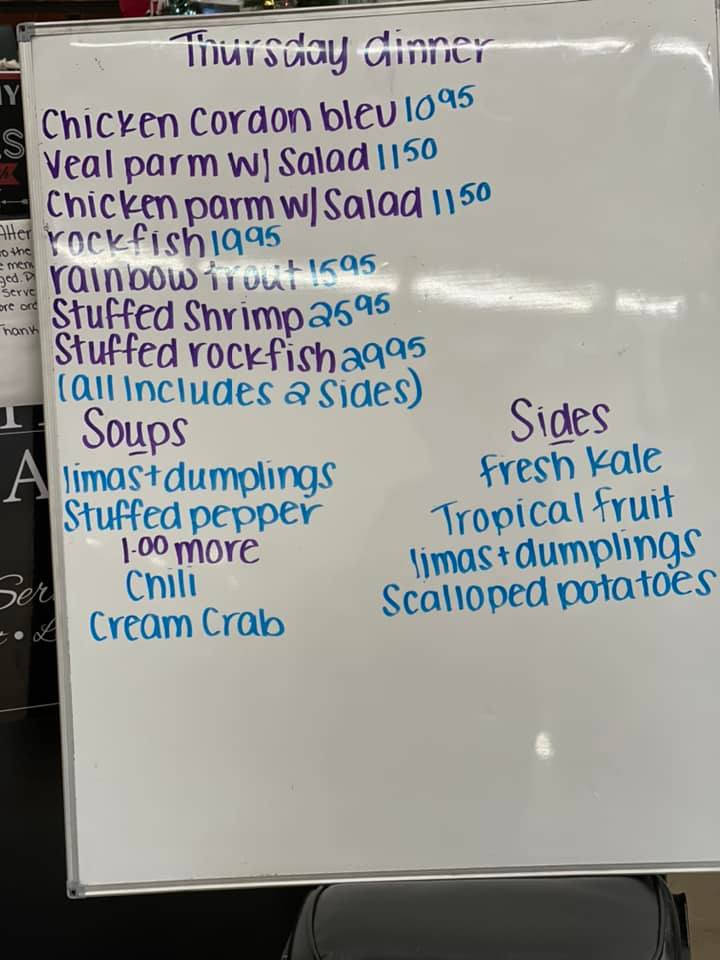 Thursday dinner
Chicken Cordon bleu 10 95
Veal parm w/ Salad 11 50
Chicken parm w/ Salad 11 50
rockfish 19 95
rainbow trout 15 95
Stuffed Shrimp 25 95
Stuffed rockfish 29 95
(all Includes 2 Sides)
Soups
limas + dumplings
Stuffed pepper
1.00 more
Chili
Cream Crab
Sides
fresh kale
Tropical fruit
limas + dumplings
Scalloped potatoes